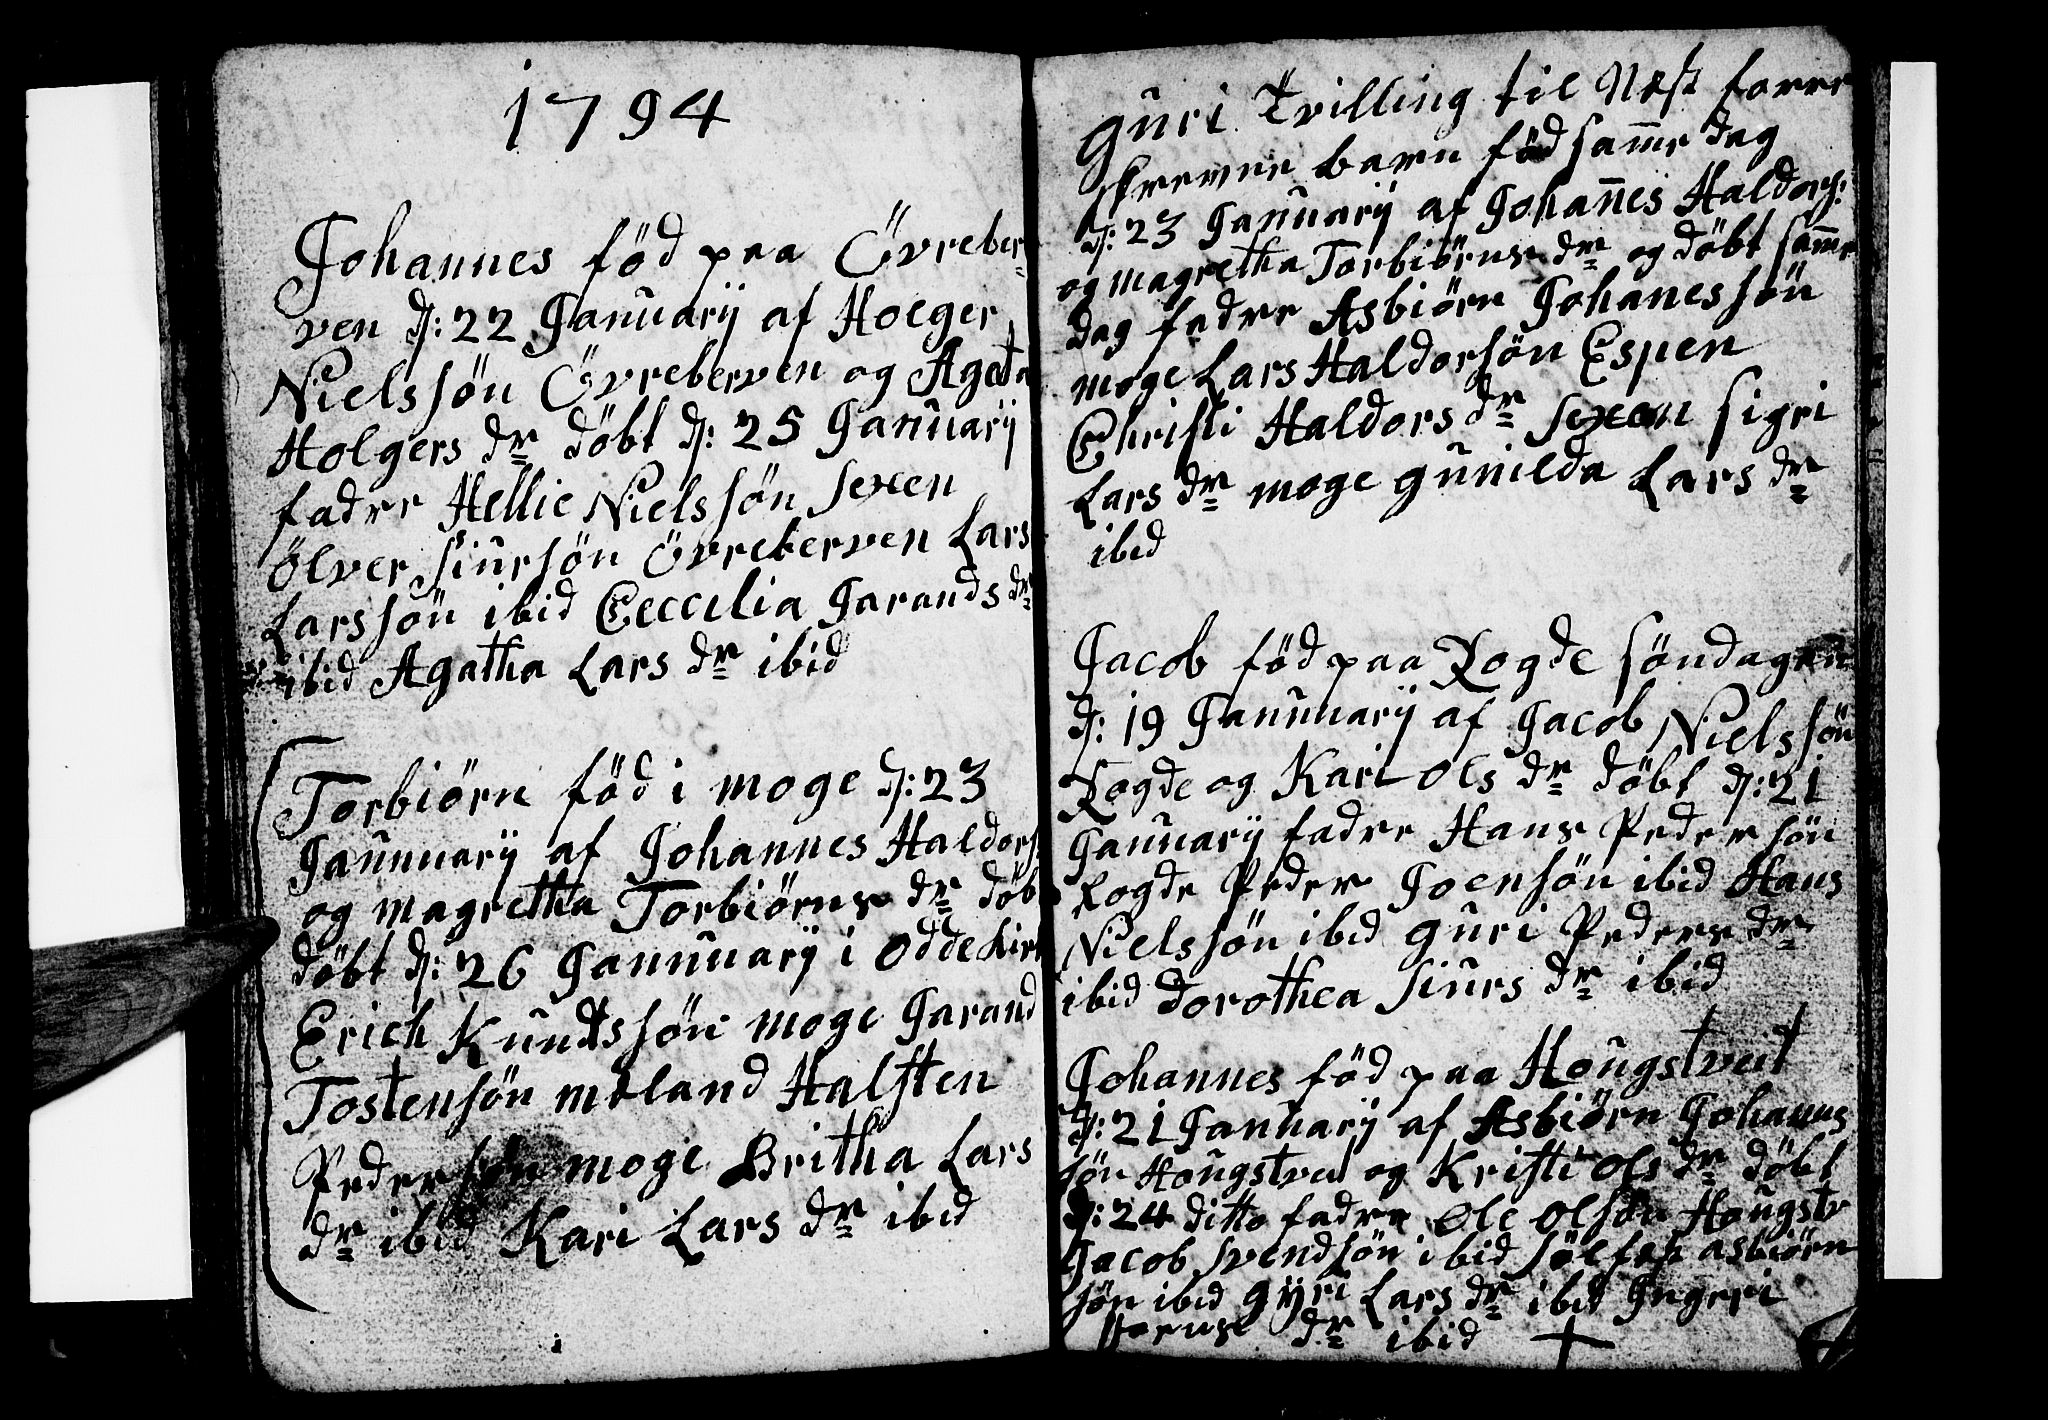 1794
Johannes fød paa Övreber-
ven d: 22 Januarÿ af Hoeger
Nielssøn Övreberven og Agata
Holgers dr døbt d: 25 Januarÿ
fadre Hellie Nielssøn Sexen
Ölver Siursøn Övreberven Lars
Larssøn ibid Ceccilia Jarands dr
ibid Agatha Lars dr ibid
Torbiørn fød i moge d: 23
Janunuarÿ af Johannes Haldors:
og magretha Torbiørns dr døb
døbt d: 26 Janunuarÿ i Odde Kirk
Erich Kundtssøn moge Jarand
Tostensøn meland Halften
Pedersøn moge Britha Lars
dr ibid Kari Lars dr ibid
guri Tvilling til Nest forre
skrevne barn fød samme dag
d: 23 Januarÿ af Johannes Haldors:
og magretha Torbiørns dr og døbt samme
dag fadre Asbiørn Johanessøn
moge Lars Haldorsøn Espen
Christi Haldors dr Sexen Sigri
Lars dr moge gunilda Lars dr
ibid
Jacob fød paa Rogde søndagen
d: 19 Janunuarÿ af Jacob Nielssøn
Rogde og Kari Ols dr døbt d: 21
Januarÿ fadre Hans Pedersøn
Rogde Peder Joensøn ibid Hans
Nielssøn ibid guri Peders dr
ibid Dorothea Siurs dr ibid
Johannes fød paa Hougstveit
d: 21 Januarÿ af Asbiørn Johannes
søn Hougstveit og Kristi Ols dr døbt
d: 24 ditto fadre Ole Olsøn Hougstv
Jacob Svendsøn ibid Sølfest asbiørn
søn ibid gÿri Lars dr ibid Ingeri
dr ibid